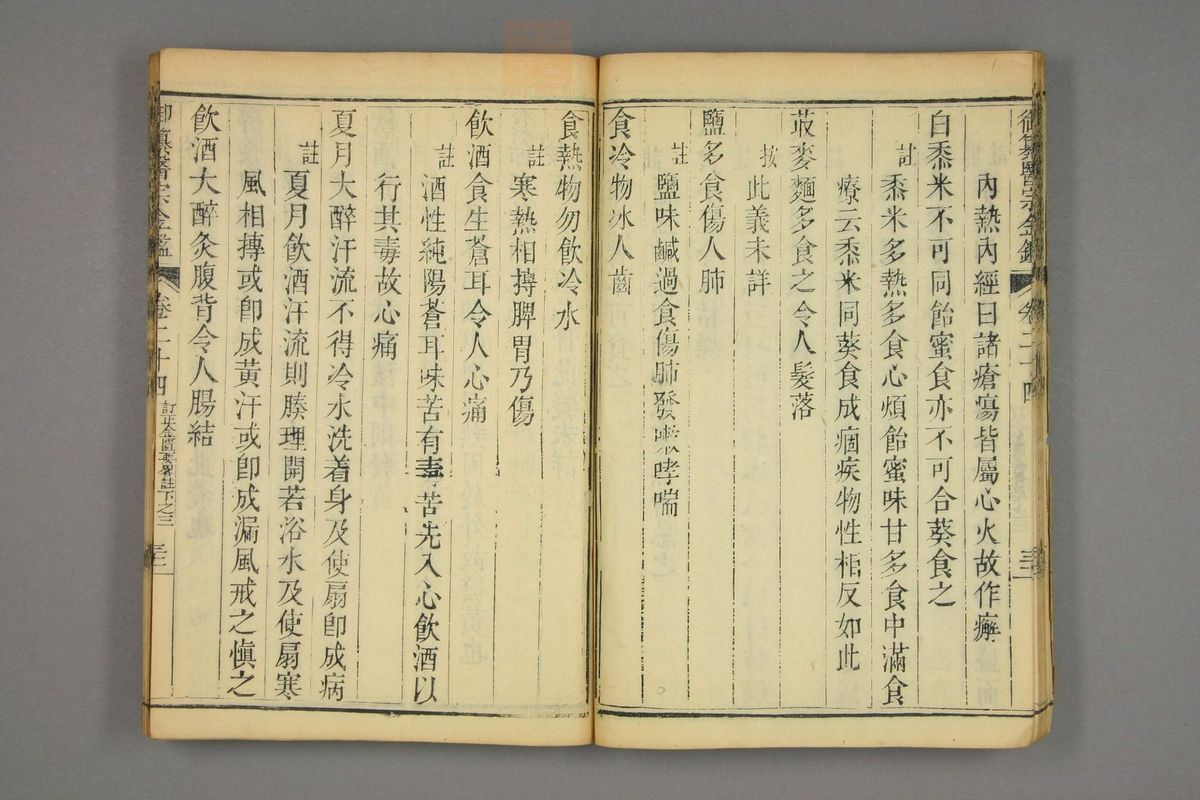 御纂醫宗金鑑 卷二十四
內熱內經曰諸瘡瘍皆屬心火故作癬
白黍米不可同飴蜜食亦不可合葵食之
註 黍米多熱多食心煩飴蜜味甘多食中滿食
療云黍米同葵食成痼疾物性相反如此
荍麥麵多食之令人髮落
按 此義未詳
鹽多食傷人肺
註 鹽味鹹過食傷肺發嗽哮喘
食冷物冰人齒
食熱物勿飲冷水
註 寒熱相搏脾胃乃傷
飲酒食生蒼耳令人心痛
註 酒性純陽蒼耳味苦有毒苦先入心飲酒以
行其毒故心痛
夏月大醉汗流不得冷水洗着身及使扇卽成病
註 夏月飲酒汗流則腠理開若浴水及使扇寒
風相搏或卽成黃汗或卽成漏風戒之愼之
飲酒大醉灸腹背令人腸結
御纂醫宗金鑑 卷二十四 訂正金匱要畧註下之三